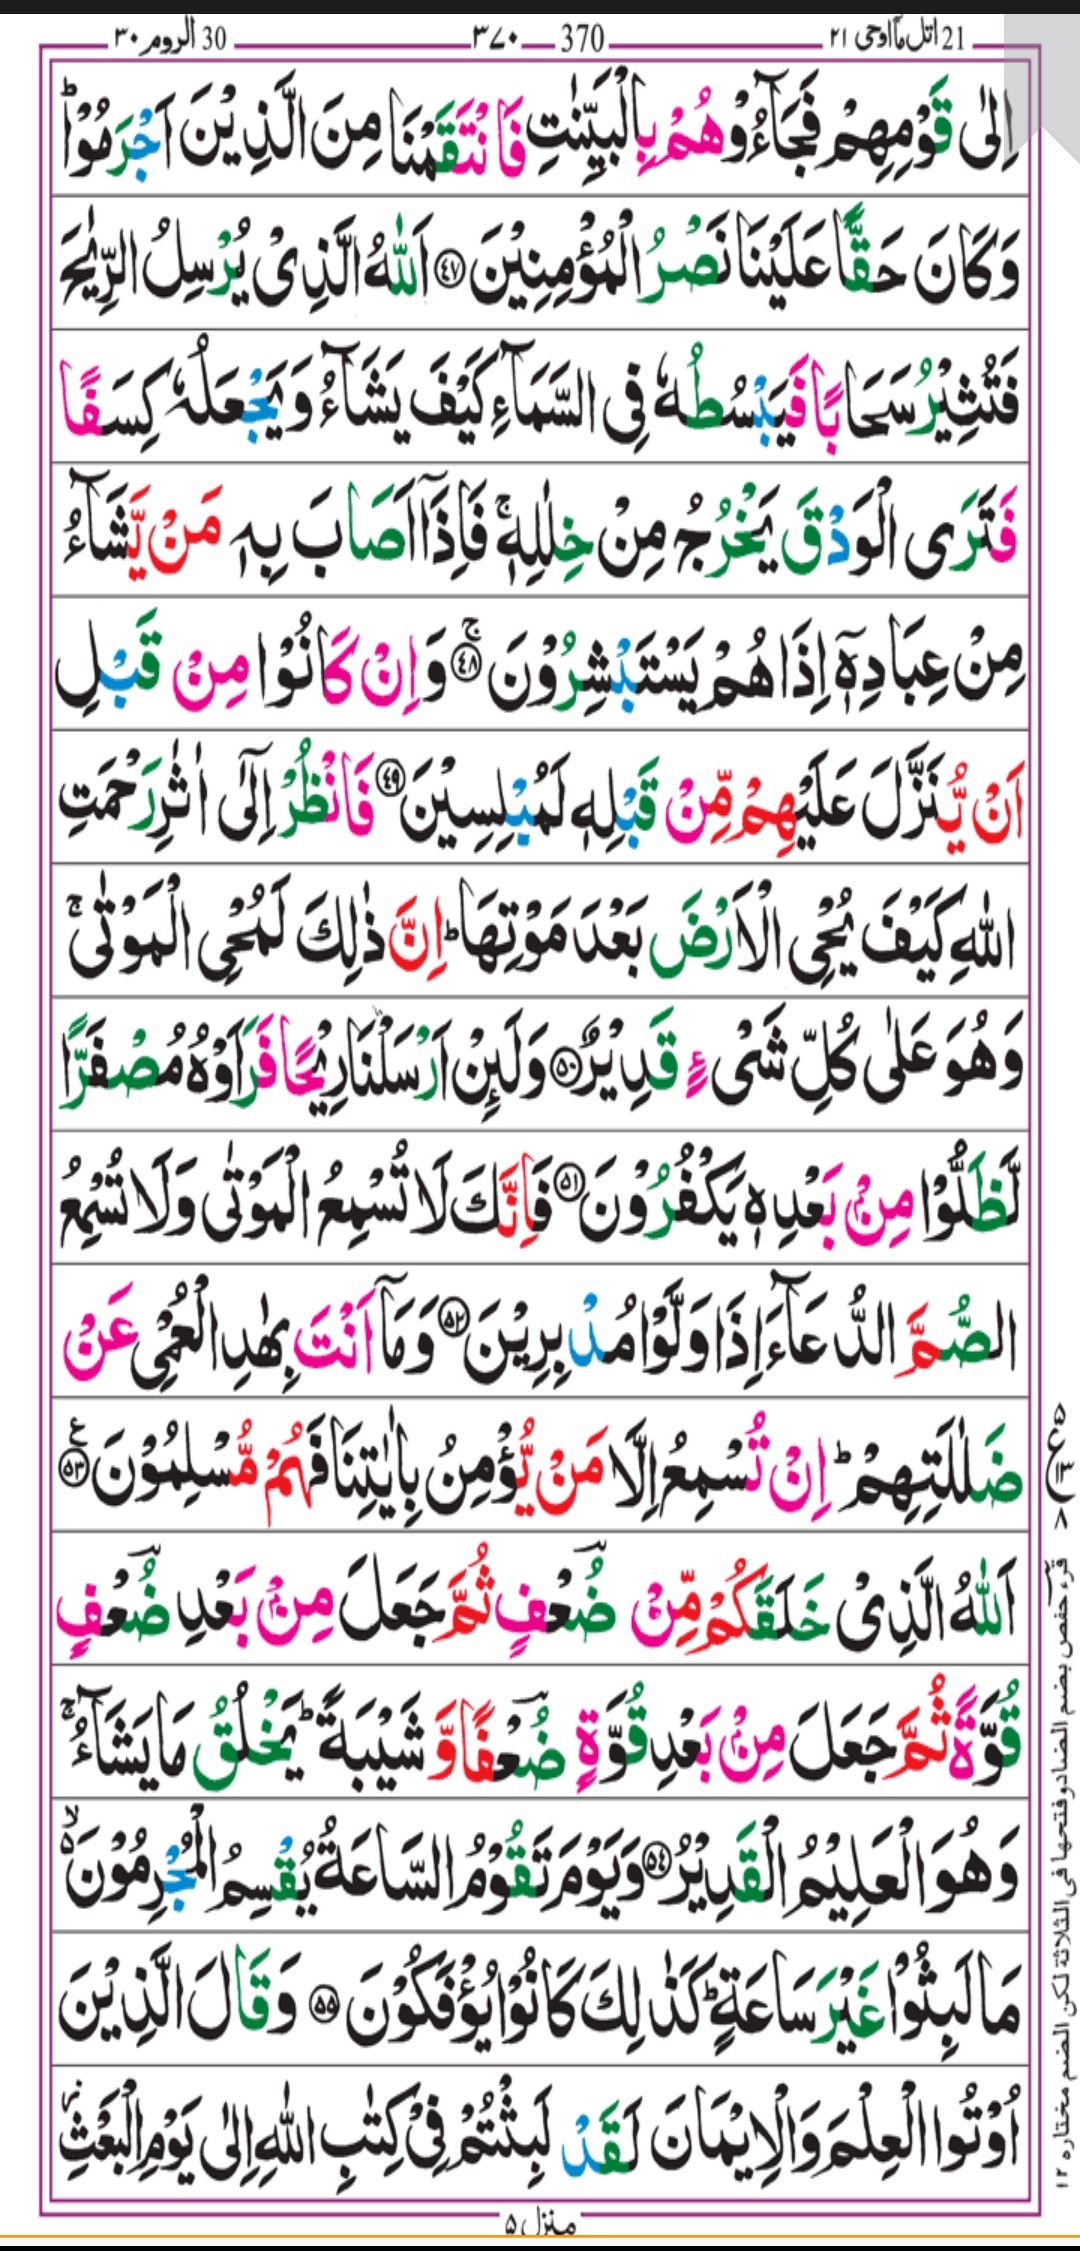 21 اتل مآ اوحی ۲۱ 370 ۳۷۰ 30 الروم ۳۰
اِلٰى قَوْمِهِمْ فَجَآءُوْهُمْ بِالْبَيِّنٰتِ فَانْتَقَمْنَا مِنَ الَّذِيْنَ اَجْرَمُوْا ؕ
وَكَانَ حَقًّا عَلَيْنَا نَصْرُ الْمُؤْمِنِيْنَ ۝۴۷ اَللّٰهُ الَّذِىْ يُرْسِلُ الرِّيٰحَ
فَتُثِيْرُ سَحَابًا فَيَبْسُطُهٗ فِى السَّمَآءِ كَيْفَ يَشَآءُ وَيَجْعَلُهٗ كِسَفًا
فَتَرَى الْوَدْقَ يَخْرُجُ مِنْ خِلٰلِهٖ ۚ فَاِذَآ اَصَابَ بِهٖ مَنْ يَّشَآءُ
مِنْ عِبَادِهٖٓ اِذَا هُمْ يَسْتَبْشِرُوْنَ ۝۴۸ ۚ وَاِنْ كَانُوْا مِنْ قَبْلِ
اَنْ يُّنَزَّلَ عَلَيْهِمْ مِّنْ قَبْلِهٖ لَمُبْلِسِيْنَ ۝۴۹ فَانْظُرْ اِلٰٓى اٰثٰرِ رَحْمَتِ
اللّٰهِ كَيْفَ يُحْىِ الْاَرْضَ بَعْدَ مَوْتِهَا ؕ اِنَّ ذٰلِكَ لَمُحْىِ الْمَوْتٰى ۚ
وَهُوَ عَلٰى كُلِّ شَىْءٍ قَدِيْرٌ ۝۵۰ وَلَئِنْ اَرْسَلْنَا رِيْحًا فَرَاَوْهُ مُصْفَرًّا
لَّظَلُّوْا مِنْۢ بَعْدِهٖ يَكْفُرُوْنَ ۝۵۱ فَاِنَّكَ لَا تُسْمِعُ الْمَوْتٰى وَلَا تُسْمِعُ
الصُّمَّ الدُّعَآءَ اِذَا وَلَّوْا مُدْبِرِيْنَ ۝۵۲ وَمَآ اَنْتَ بِهٰدِ الْعُمْىِ عَنْ
ضَلٰلَتِهِمْ ؕ اِنْ تُسْمِعُ اِلَّا مَنْ يُّؤْمِنُ بِاٰيٰتِنَا فَهُمْ مُّسْلِمُوْنَ ۝۵۳ ع
۵ ع ۱۳ ۸
اَللّٰهُ الَّذِىْ خَلَقَكُمْ مِّنْ ضُعْفٍ ثُمَّ جَعَلَ مِنْۢ بَعْدِ ضُعْفٍ
قُوَّةً ثُمَّ جَعَلَ مِنْۢ بَعْدِ قُوَّةٍ ضُعْفًا وَّشَيْبَةً ؕ يَخْلُقُ مَا يَشَآءُ ۚ
وَهُوَ الْعَلِيْمُ الْقَدِيْرُ ۝۵۴ وَيَوْمَ تَقُوْمُ السَّاعَةُ يُقْسِمُ الْمُجْرِمُوْنَ ۙ
مَا لَبِثُوْا غَيْرَ سَاعَةٍ ؕ كَذٰلِكَ كَانُوْا يُؤْفَكُوْنَ ۝۵۵ وَقَالَ الَّذِيْنَ
اُوْتُوا الْعِلْمَ وَالْاِيْمَانَ لَقَدْ لَبِثْتُمْ فِىْ كِتٰبِ اللّٰهِ اِلٰى يَوْمِ الْبَعْثِ
قرء حفص بضم الضاد وفتحها فی الثلاثة لکن الضم مختاره ۱۲
منزل ۵